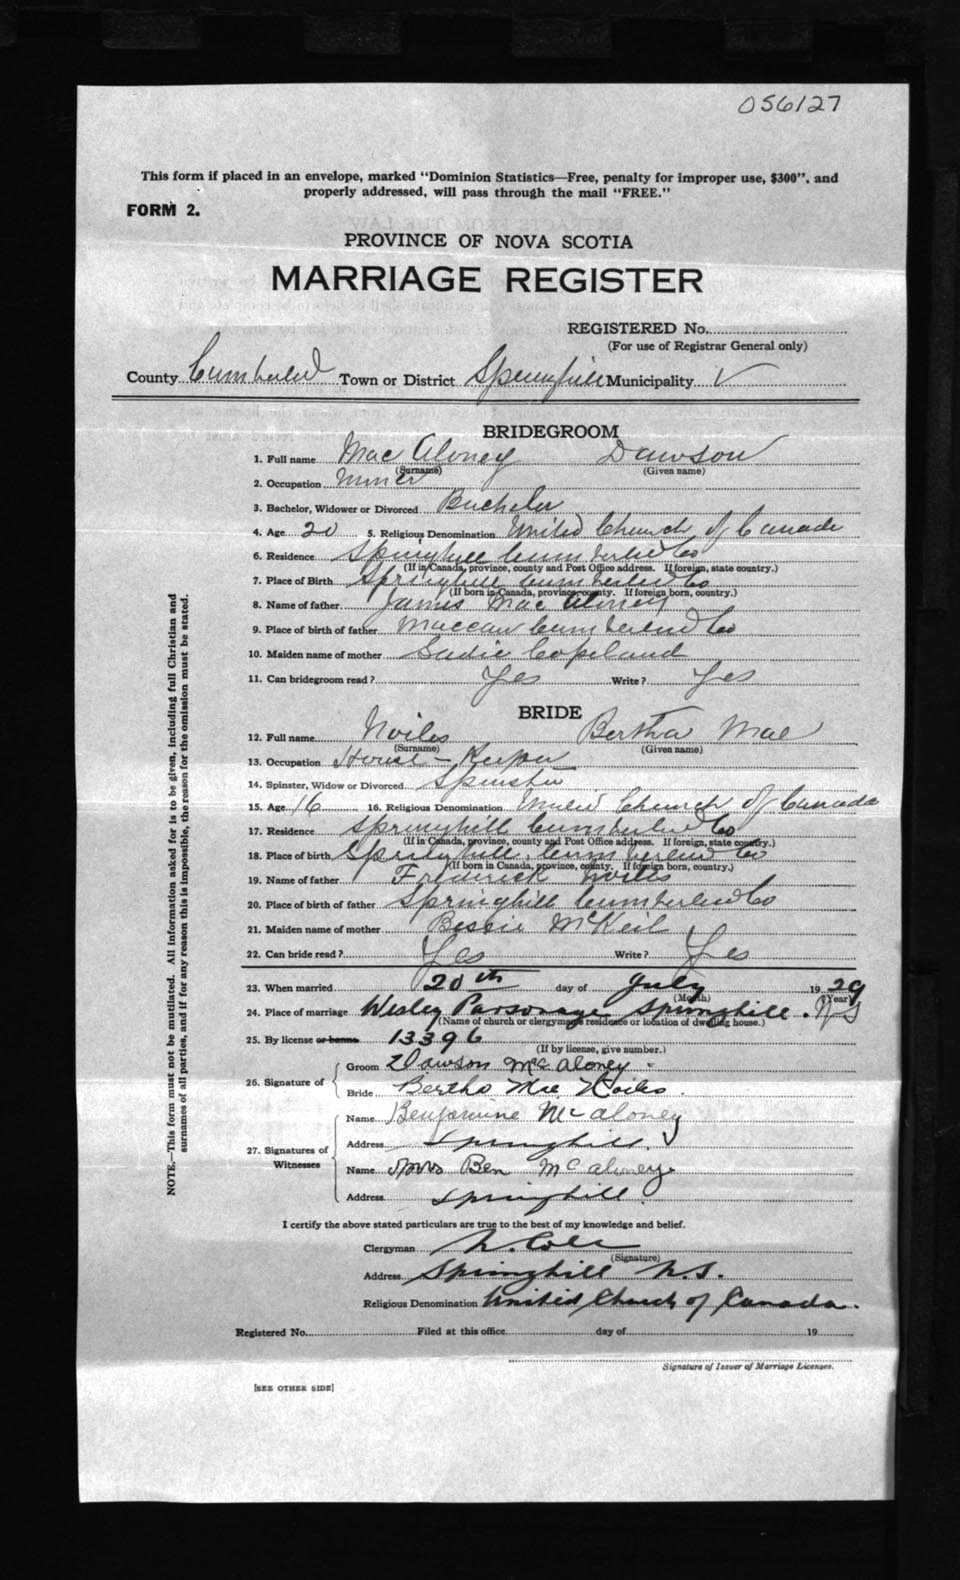 056127
This form if placed in an envelope, marked "Dominion Statistics—Free, penalty for improper use, $300", and
properly addressed, will pass through the mail "FREE."
FORM 2.
PROVINCE OF NOVA SCOTIA
MARRIAGE REGISTER
REGISTERED No.
(For use of Registrar General only)
County Cumberland Town or District Springhill Municipality √
BRIDEGROOM
1. Full name Mac Aloney Dawson
(Surname) (Given name)
2. Occupation Miner
3. Bachelor, Widower or Divorced Bachelor
4. Age 20 5. Religious Denomination United Church of Canada
6. Residence Springhill Cumberland Co
(If in Canada, province, county and Post Office address. If foreign, state country.)
7. Place of Birth Springhill Cumberland Co
(If born in Canada, province, county. If foreign born, country.)
8. Name of father James Mac Aloney
9. Place of birth of father Maccan Cumberland Co
10. Maiden name of mother Sadie Copeland
11. Can bridegroom read? Yes Write? Yes
BRIDE
12. Full name Noiles Bertha Mae
(Surname) (Given name)
13. Occupation House-Keeper
14. Spinster, Widow or Divorced Spinster
15. Age 16 16. Religious Denomination United Church of Canada
17. Residence Springhill Cumberland Co
(If in Canada, province, county and Post Office address. If foreign, state country.)
18. Place of birth Springhill, Cumberland Co
(If born in Canada, province, county. If foreign born, country.)
19. Name of father Frederick Noiles
20. Place of birth of father Springhill Cumberland Co
21. Maiden name of mother Bessie McKeil
22. Can bride read? Yes Write? Yes
23. When married 20th day of July 1929
(Month) (Year)
24. Place of marriage Wesley Parsonage Springhill. N S
(Name of church or clergyman's residence or location of dwelling house.)
25. By license or banns 13396
(If by license, give number.)
26. Signature of
Groom Dawson McAloney
Bride Bertha Mae Noiles.
27. Signatures of Witnesses
Name Benjamine McAloney
Address Springhill.
Name Mrs Ben McAloney.
Address Springhill.
I certify the above stated particulars are true to the best of my knowledge and belief.
Clergyman
(Signature)
Address Springhill N.S.
Religious Denomination United Church of Canada.
Registered No. Filed at this office day of 19
Signature of Issuer of Marriage Licenses.
[SEE OTHER SIDE]
NOTE.—This form must not be mutilated. All information asked for is to be given, including full Christian and
surnames of all parties, and if for any reason this is impossible, the reason for the omission must be stated.